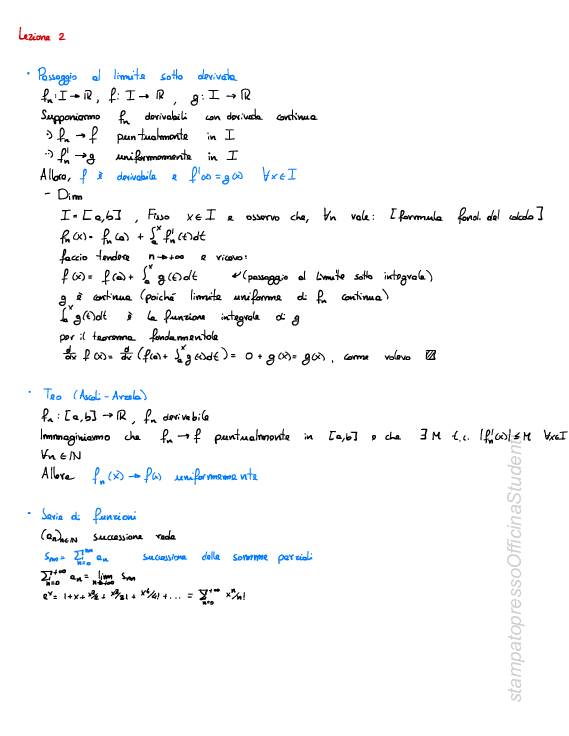 Lezione 2
· Passaggio al limite sotto derivata
fₙ: I → ℝ, f: I → ℝ, g: I → ℝ
Supponiamo fₙ derivabili con derivata continua
·) fₙ → f puntualmente in I
·) fₙ' → g uniformemente in I
Allora, f è derivabile e f'(x) = g(x) ∀x∈I
- Dim
I = [a,b], Fisso x∈I e osservo che, ∀n vale: [formula fond. del calcolo]
fₙ(x) = fₙ(a) + ∫ₐˣ fₙ'(t)dt
faccio tendere n→+∞ e ricavo:
f(x) = f(a) + ∫ₐˣ g(t)dt ↙(passaggio al limite sotto integrale)
g è continua (poiché limite uniforme di fₙ continua)
∫ₐˣ g(t)dt è la funzione integrale di g
per il teorema fondamentale
d/dx f(x) = d/dx (f(a) + ∫ₐˣ g(t)dt) = 0 + g(x) = g(x), come volevo ▨
· Teo (Ascoli-Arzela)
fₙ: [a,b] → ℝ, fₙ derivabile
Immaginiamo che fₙ → f puntualmente in [a,b] e che ∃ M t.c. |fₙ'(x)| ≤ M ∀x∈I
∀n∈ℕ
Allora fₙ(x) → f(x) uniformemente
· Serie di funzioni
(aₙ)ₙ∈ℕ successione reale
sₘ = ∑ₙ₌₀ᵐ aₙ successione delle somme parziali
∑ₙ₌₀⁺∞ aₙ = lim ₘ→+∞ sₘ
eˣ = 1 + x + x²/2 + x³/3! + x⁴/4! + ... = ∑ₙ₌₀⁺∞ xⁿ/n!
stampatopressoOfficinaStudenti